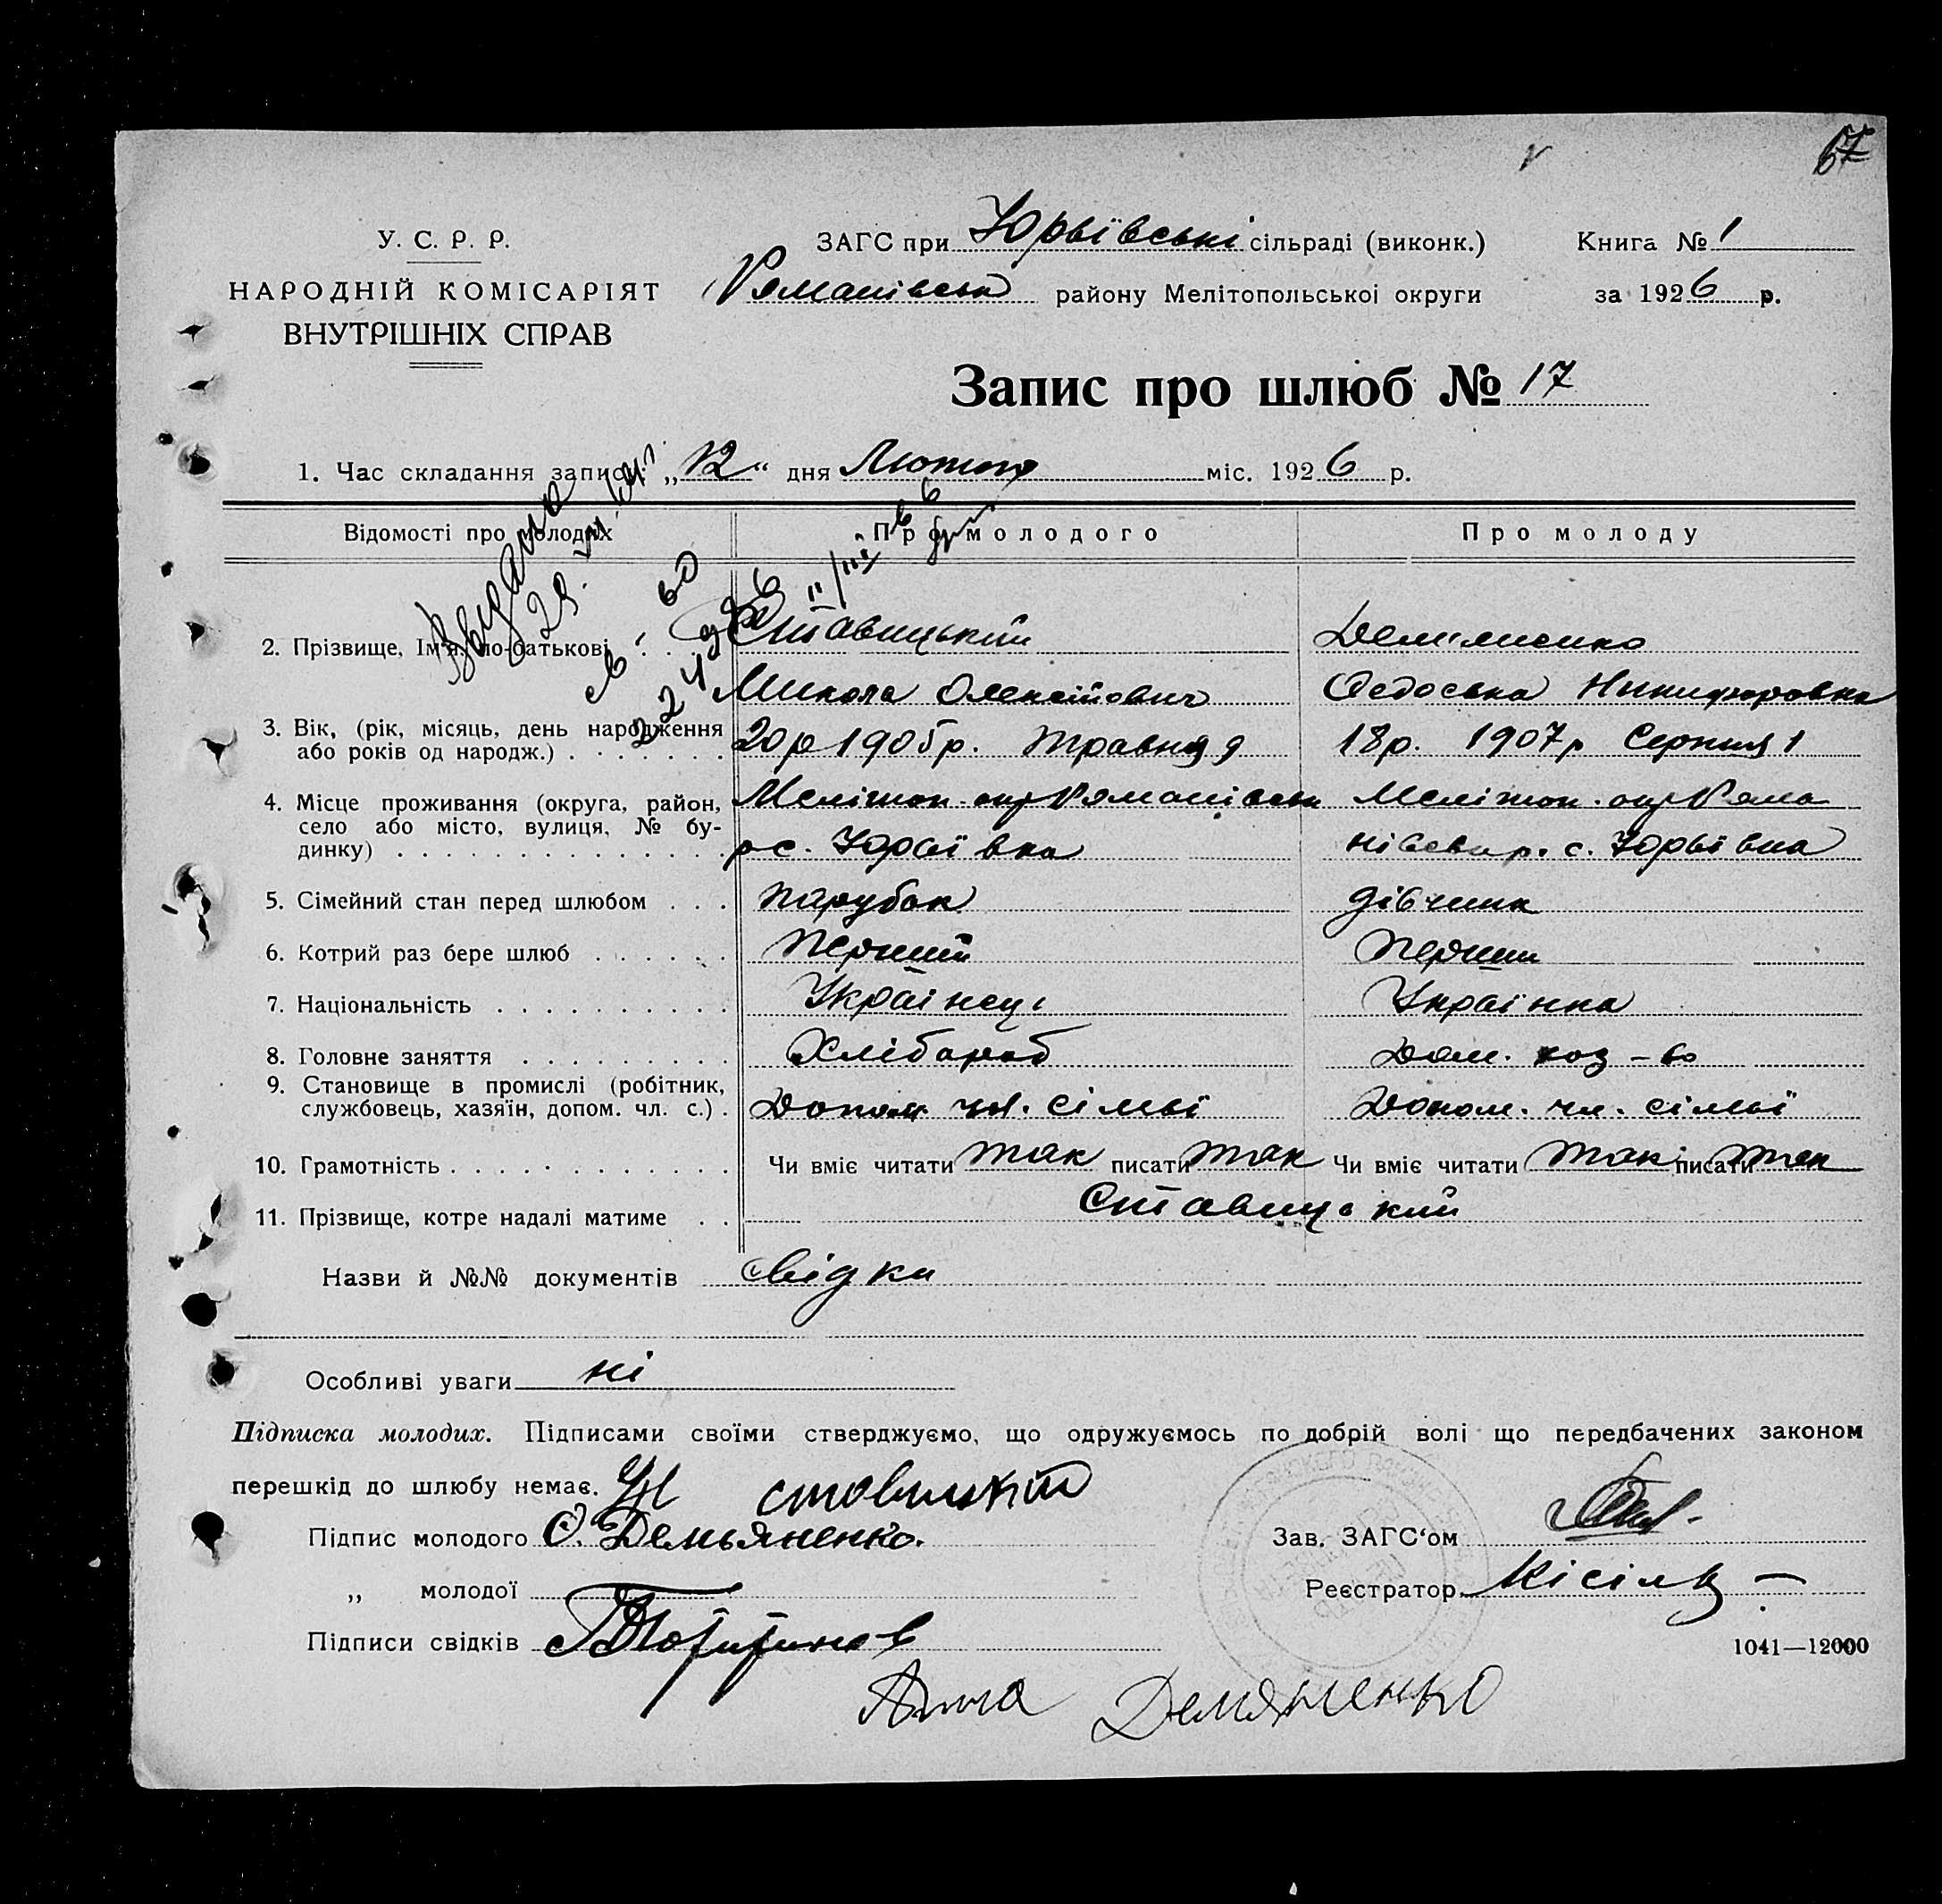 67
У. С. Р. Р.
НАРОДНІЙ КОМІСАРІЯТ
ВНУТРІШНІХ СПРАВ
ЗАГС при Юрьївські сільраді (виконк.)
Романівськ району Мелітопольської округи
Книга № 1
за 1926 р.
Запис про шлюб № 17
1. Час складання запису „12“ дня Лютого міс. 1926 р.
Відомості про молодих
Про молодого
Про молоду
Выдано
2. Прізвище, Ім'я, по-батькові . . . Ставицький
Микола Олексійович
Федоська Никифоровна
3. Вік, (рік, місяць, день народження
або років од народж.) . . . . . . . 20р 1905р. Травня 9 18р. 1907р Серпня 1
4. Місце проживання (округа, район,
село або місто, вулиця, № бу-
динку) . . . . . . . . . . . . . .
Меліт оп. окр Романівськ
р с. Юрьївка
Мелітоп. окр Рома
нівськ р. с. Юрьївка
5. Сімейний стан перед шлюбом . . . парубок дівчина
6. Котрий раз бере шлюб . . . . . . Перший Перший
7. Національність . . . . . . . . . . Українець Українка
8. Головне заняття . . . . . . . . . Хлібороб Дом. хоз-во
9. Становище в промислі (робітник,
службовець, хазяїн, допом. чл. с.) . Допом. чл. сімьї Допом. чл. сімьї
10. Грамотність . . . . . . . . . . . . Чи вміє читати так писати так Чи вміє читати так писати так
11. Прізвище, котре надалі матиме . . Ставицький
Назви й №№ документів свідки
Особливі уваги ні
Підписка молодих. Підписами своїми стверджуємо, що одружуємось по добрій волі що передбачених законом
перешкід до шлюбу немає. ставицкій
Підпис молодого Ф. Демьяненко.
„ молодої
Підписи свідків
Зав. ЗАГС‘ом
Реєстратор Кісіль
1041—12000
Анна Демяненко